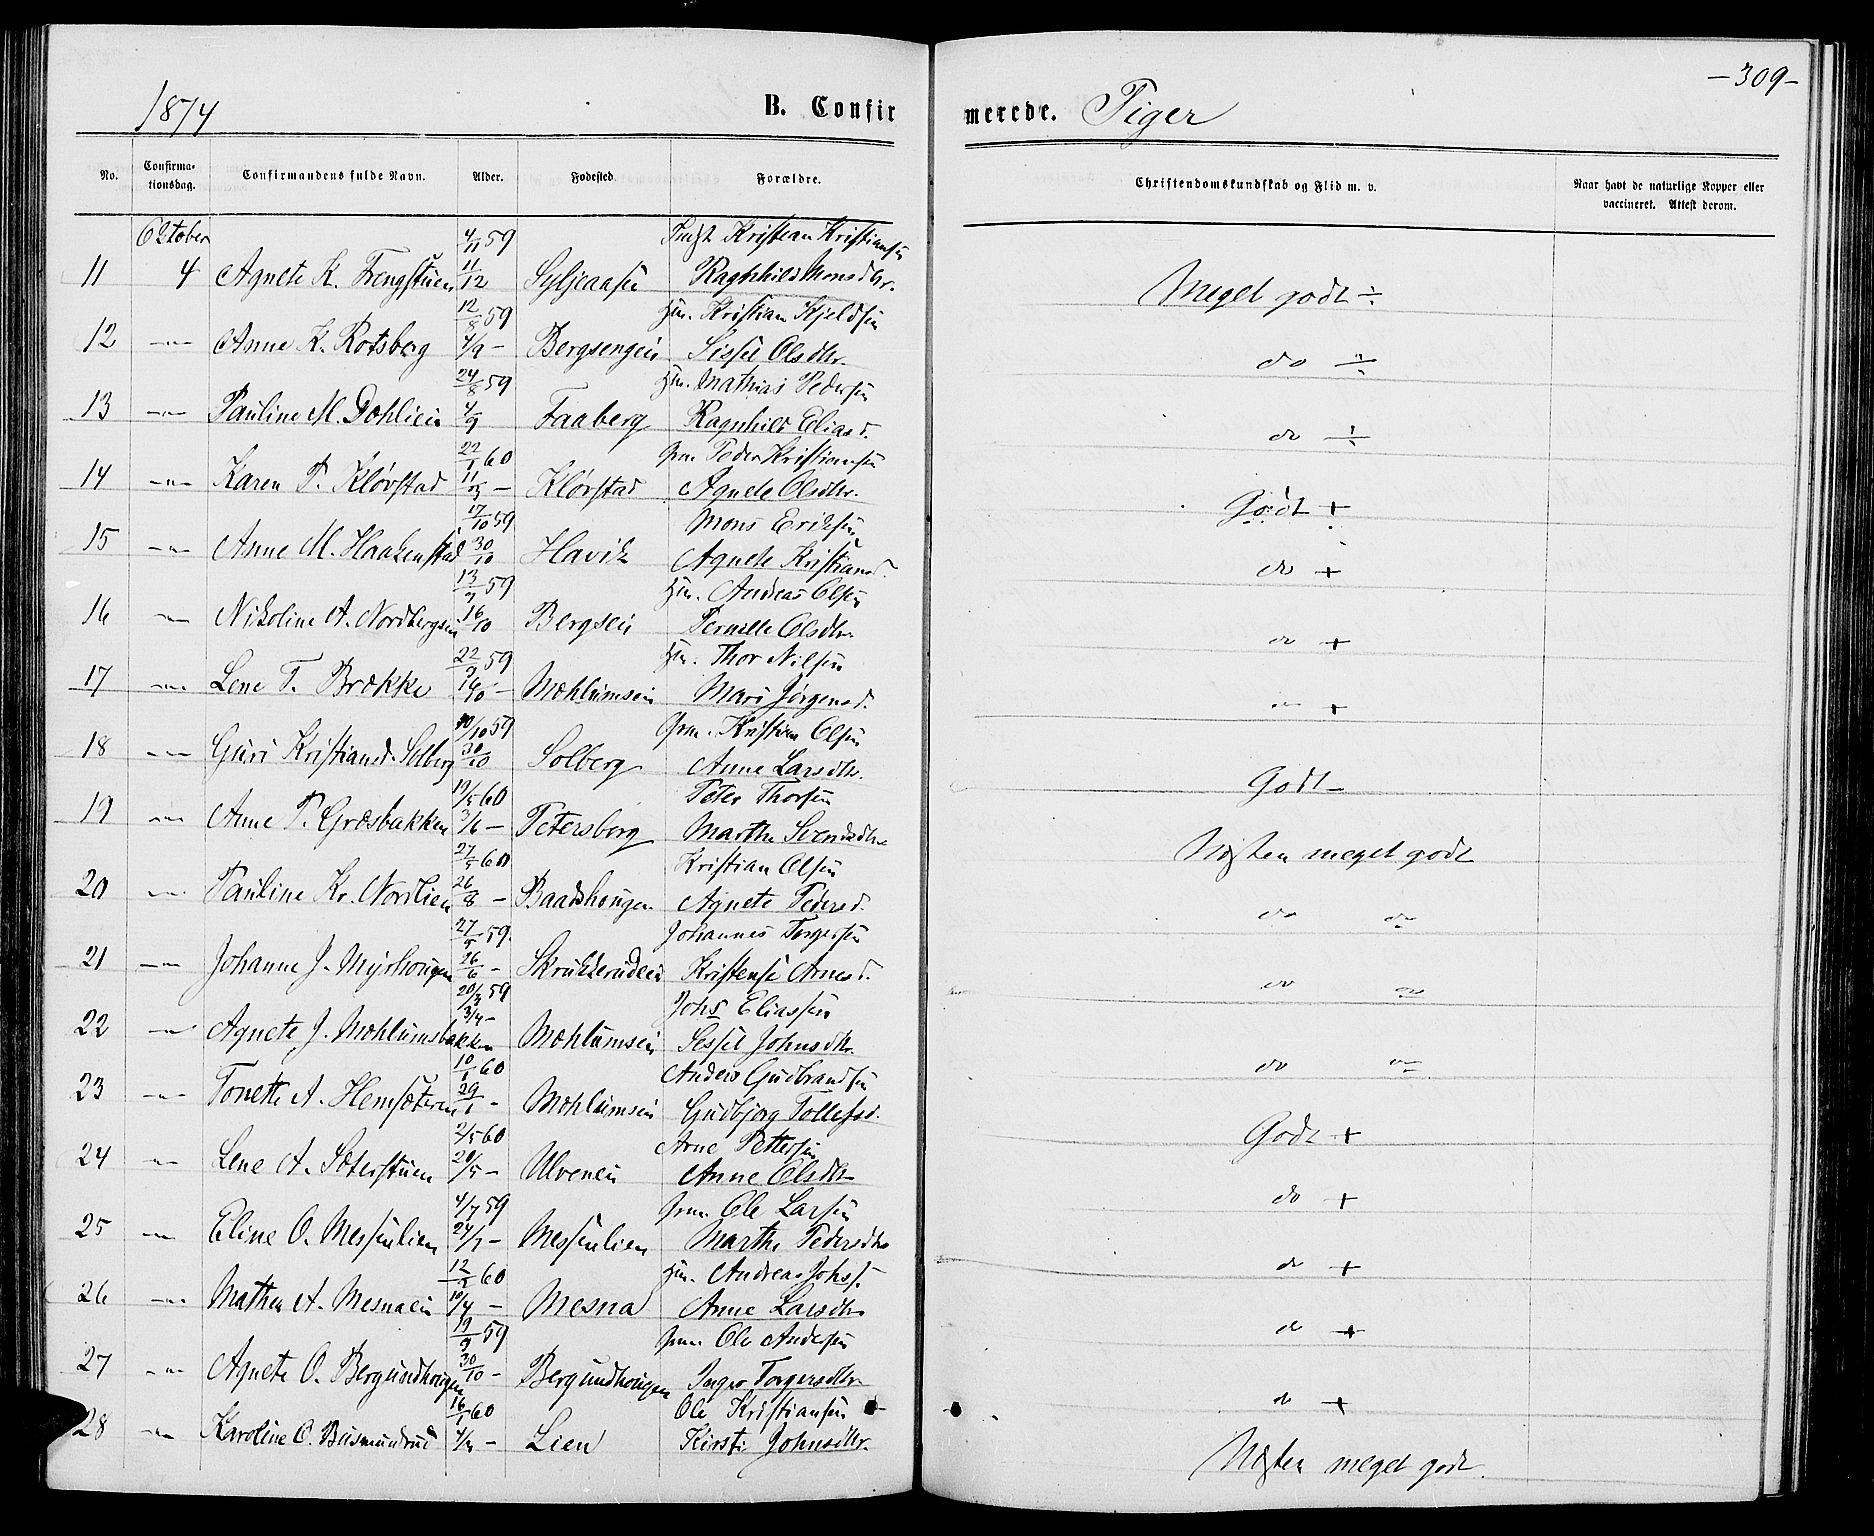 1874 B. Confirmerede. Piger -309-
No. Confirmationsdag. Confirmandens fulde Navn. Alder. Fødested. Forældre. Christendomskundskab og Flid m. v. Naar havt de naturlige Kopper eller vaccineret. Attest derom.
Oktober 4/11 59 Kristian Kristiansen
11 4 Agnete K. Frengstuen 11/12 Syljeaasen Ragnhild Monsdtr. Meget godt ÷
12/8 59 Hm. Kristian Kjeldsen
12 -"- Anne K. Rotsberg 4/9 - Bergsengen Sissel Olsdtr. do ÷
24/8 59 Hm. Mathias Pedersen
13 -"- Pauline M. Dæhlien 4/9 Faaberg Ragnhild Eliasd. do ÷
22/1 60 Grm Peder Kristiansen
14 -"- Karen P. Kløvstad 11/3 - Kløvstad Agnete Olsdtr. Godt +
17/10 59 Mons Eriksen
15 -"- Anne M. Haakenstad 30/10 Havik Agnete Kristiansd. do +
13/9 59 Hm. Andreas Olsen
16 -"- Nikoline A. Nordbergsen 16/10 Bergsen Pernille Olsdtr do +
22/9 59 Hm. Thor Nilsen
17 -"- Lene T. Brække 16/10 - Mæhlumsen Mari Jørgensd. -"- +
10/10 59 Grm. Kristian Olsen
18 -"- Guri Kristiansd. Solberg 30/10 Solberg Anne Larsdtr. Godt -
19/5 60 Peter Thorsen
19 -"- Anne P. Græsbakken 3/6 - Petersborg Marthe Svendsdtr Næsten meget godt
27/5 60 Kristian Olsen
20 -"- Pauline Kr. Nordlien 26/8 - Baadshougen Agnete Pedersd. do do
27/5 59. Johannes Torgersen
21 -"- Johanne J. Myrhougen 26/6 - Skrukkerudeie Kristense Arnesd. do do
20/3 59 Johs Eliassen
22 -"- Agnete J. Mæhlumsbakken 3/4 - Mæhlumsen Sessel Johnsdtr. do do
10/1 60 Anders Gudbrandsen
23 -"- Tonette A. Hemsæteren 29/1 - Mæhlumsen Gudbjørg Tollefsd. Godt +
2/5 60 Arne Pettersen
24 -"- Lene A. Sæterstuen 20/5 - Ulvenen Anne Olsdtr do +
4/7 59 Grm. Ole Larsen
25 -"- Eline O. Messenlien 24/7 - Messenlien Marthe Pedersdtr do +
12/3 60 Hm. Andreas Johs.
26 -"- Mathea A. Mesnaen 10/4 - Mesna Anne Larsdtr do +
19/9 59 Grm Ole Andersen
27 -"- Agnete O. Bergundhougen 30/10 - Bergundhougen Inger Torgersdtr do +
16/1 60 Ole Kristiansen
28 -"- Karoline O. Busmundrud 4/3 - Lien Kirsti Johnsdtr. Næsten meget godt.